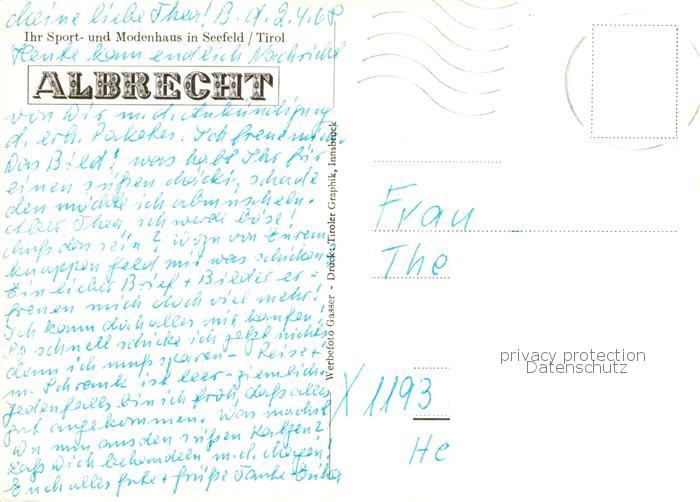 Meine liebe Thea! B. d. 2.4.68
Ihr Sport- und Modenhaus in Seefeld / Tirol
Heute kam endlich Nachricht
ALBRECHT
von Dir m. d. Ankündigung
d. erh. Paketes. Ich freue mich.
Das Bild! was habt Ihr für
einen süßen schade
den möchte ich
Aber Thea, ich werde böse!
muß das sein? wozu von Eurem
knappen Geld mir was schicken
Ein lieber Brief + Bilder er-
freuen mich doch viel mehr!
Ich kann doch alles mir kaufen!
So schnell schicke ich jetzt nichts
denn ich muß sparen - Reise +
m. Schrank ist leer - ziemlich
Jedenfalls bin ich froh, daß alles
gut angekommen. Was machst
Du nun aus den süßen Katzen?
Laß Dich behandeln m. d.
Euch alles gute + Grüße Tante
Werbefoto Gasser - Druck: Tiroler Graphik, Innsbruck
Frau
The
X 1193
He
privacy protection
Datenschutz